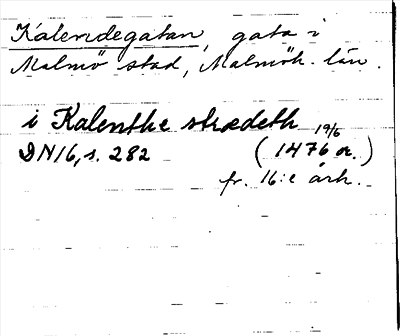 Kalendegatan, gata i
Malmö stad, Malmöh. län.
i Kalenthe strædeth 19/6
DN 16, s. 282 (1476 or.)
fr. 16:e årh.